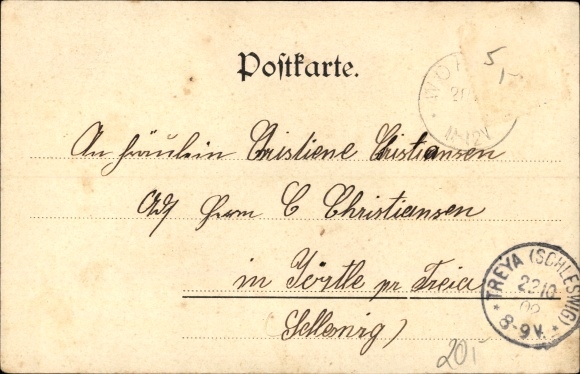 Postkarte.
5,-
11-12V
An Fräulein Cristiene Cristiansen
Adj Herrn C Christiansen
in Jörtle pr Treia
(Schleswig)
* TREYA (SCHLESWIG) *
22 10
02
8-9V.
20,-